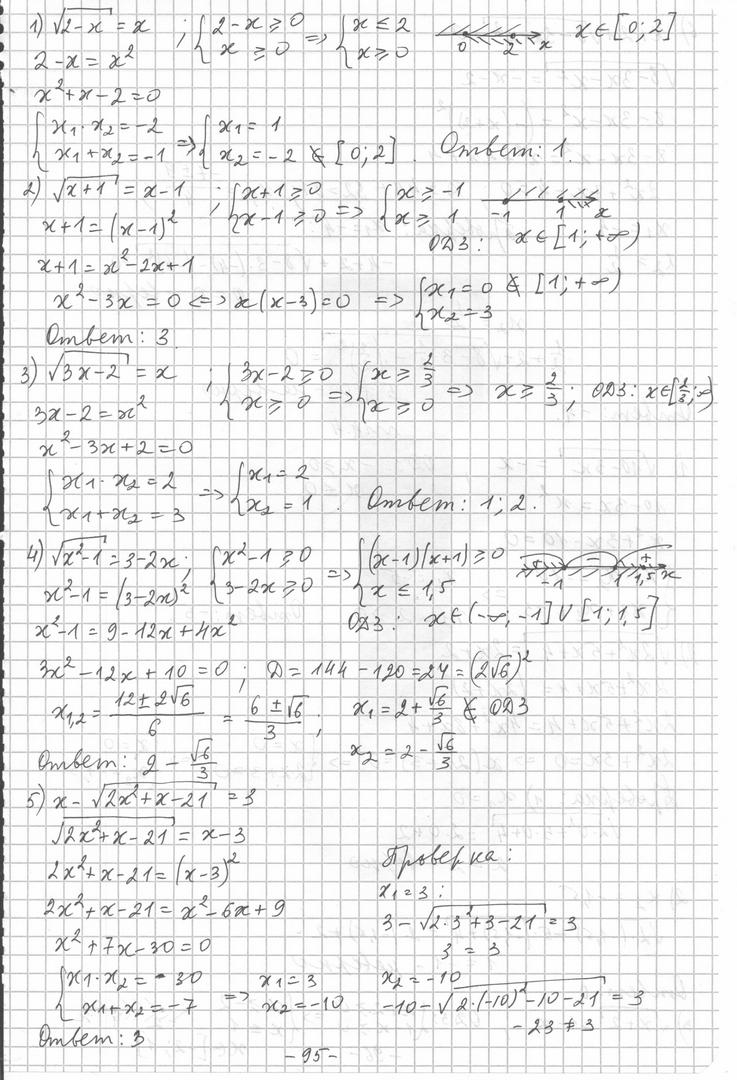 1) √(2-x) = x ; {2-x ≥ 0; x ≥ 0 => {x ≤ 2; x ≥ 0  0 2 x  x ∈ [0; 2]
2-x = x²
x²+x-2=0
{x₁·x₂ = -2; x₁+x₂ = -1 => {x₁ = 1; x₂ = -2 ∉ [0; 2]. Ответ: 1.
2) √(x+1) = x-1 ; {x+1 ≥ 0; x-1 ≥ 0 => {x ≥ -1; x ≥ 1  -1 1 x
x+1 = (x-1)²  ОДЗ: x ∈ [1; +∞)
x+1 = x²-2x+1
x²-3x = 0 <=> x(x-3)=0 => {x₁ = 0 ∉ [1; +∞); x₂ = 3
Ответ: 3.
3) √(3x-2) = x ; {3x-2 ≥ 0; x ≥ 0 => {x ≥ 2/3; x ≥ 0 => x ≥ 2/3; ОДЗ: x ∈ [2/3; ∞)
3x-2 = x²
x²-3x+2=0
{x₁·x₂ = 2; x₁+x₂ = 3 => {x₁ = 2; x₂ = 1. Ответ: 1; 2.
4) √(x²-1) = 3-2x; {x²-1 ≥ 0; 3-2x ≥ 0 => {(x-1)(x+1) ≥ 0; x ≤ 1,5  + - + -1 1 1,5 x
x²-1 = (3-2x)²
x²-1 = 9-12x+4x²  ОДЗ: x ∈ (-∞, -1] U [1; 1,5]
3x²-12x+10=0; D = 144-120=24=(2√6)²
x₁,₂ = (12±2√6)/6 = (6±√6)/3; x₁ = 2+√6/3 ∉ ОДЗ
x₂ = 2-√6/3
Ответ: 2-√6/3
5) x-√(2x²+x-21) = 3
√(2x²+x-21) = x-3
2x²+x-21 = (x-3)²
2x²+x-21 = x²-6x+9
x²+7x-30=0
{x₁·x₂ = -30; x₁+x₂ = -7 => x₁=3; x₂=-10
Ответ: 3
Проверка:
x₁=3:
3-√(2·3²+3-21) = 3
3 = 3
x₂=-10
-10-√(2·(-10)²-10-21) = 3
-23 ≠ 3
-95-